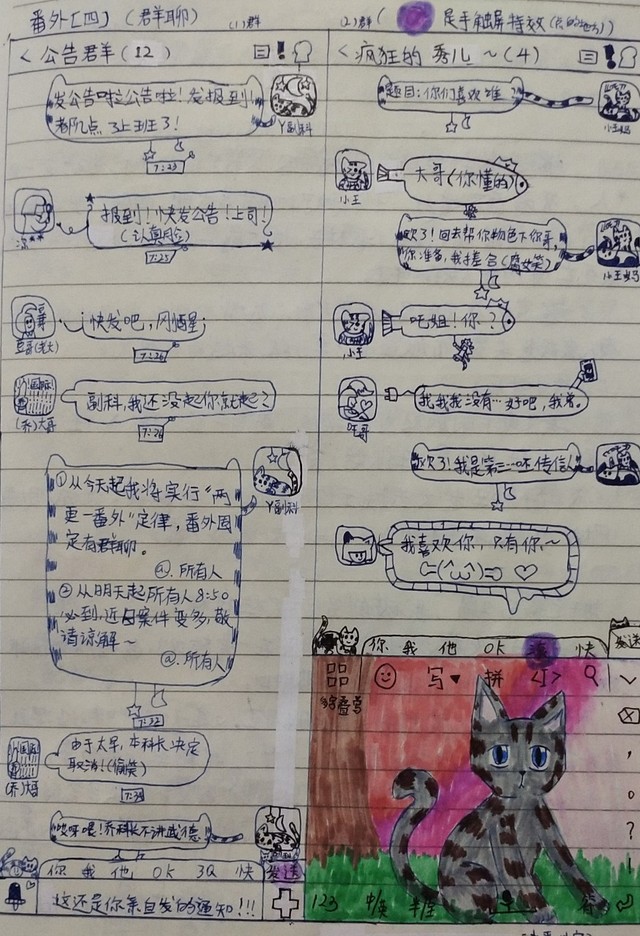 番外[四] (群聊) (1)群
< 公告君羊(12)
发公告啦公告啦!发报到!
都几点了上班了!
丫副科
7:23
报到!快发公告!上司!
(认真脸)
7:25
快发吧,
7:26
副科,我还没起你就起了?
(乔)大哥
7:26
①从今天起我将实行“两
更一番外”定律,番外固
定有群聊。
@.所有人
②从明天起所有人8:50
必到,近日案件变多,敬
请谅解~
@.所有人
丫副科
7:32
由于太早,本科长决定
取消!(偷笑)
(乔)大哥
哎呀喂!乔科长不讲武德
你 我 他 OK 3Q 快 发送
这还是你亲自发的通知!!!
(2)群
是手触屏特效
< 疯狂的秀儿~(4)
题目:你们喜欢谁?
大哥(你懂的)
小王
欢了!回去帮你物色下你哥,
你准备,我撮合(腐女笑)
吒姐!你?
小王
我我我没有…好吧,我着。
吒哥
我喜欢你,只有你~
你 我 他 OK 快 发送
写 拼
123 中/英